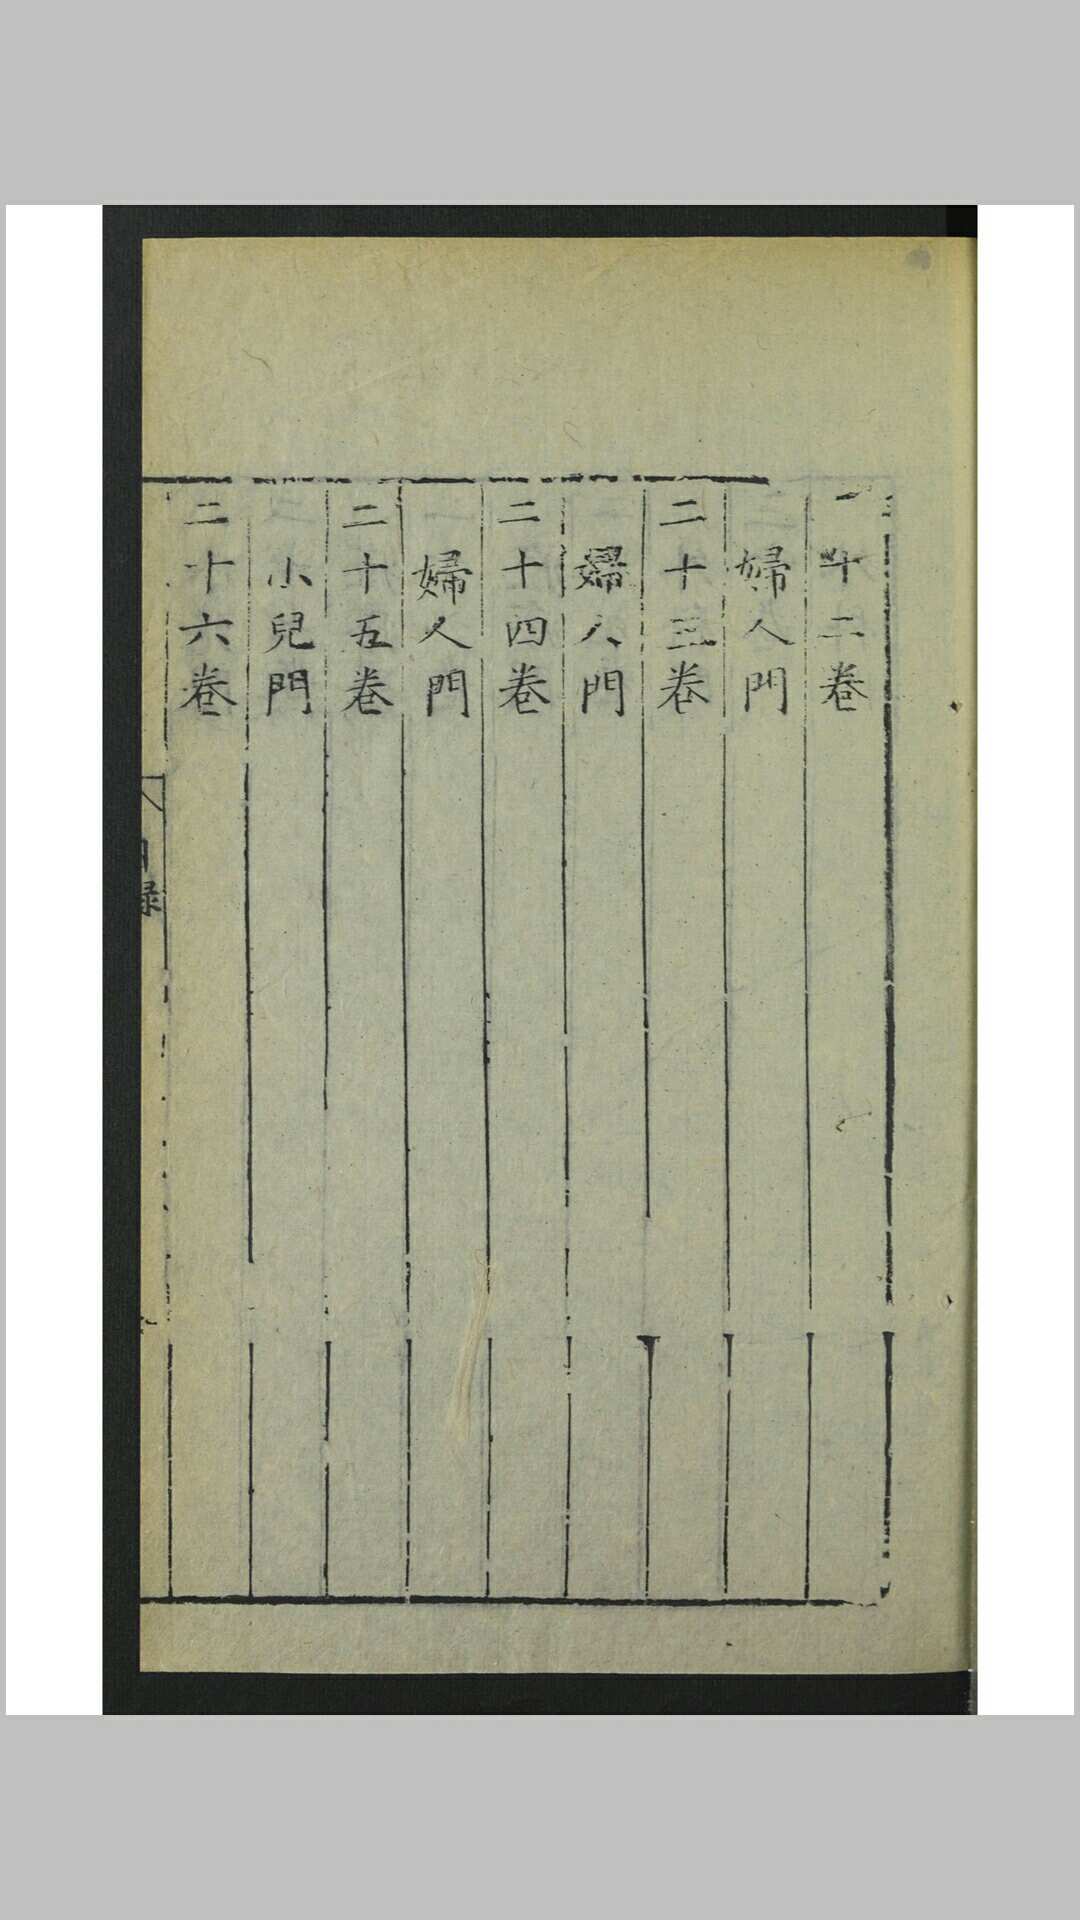 二十二卷
婦人門
二十三卷
婦人門
二十四卷
婦人門
二十五卷
小兒門
二十六卷
目錄